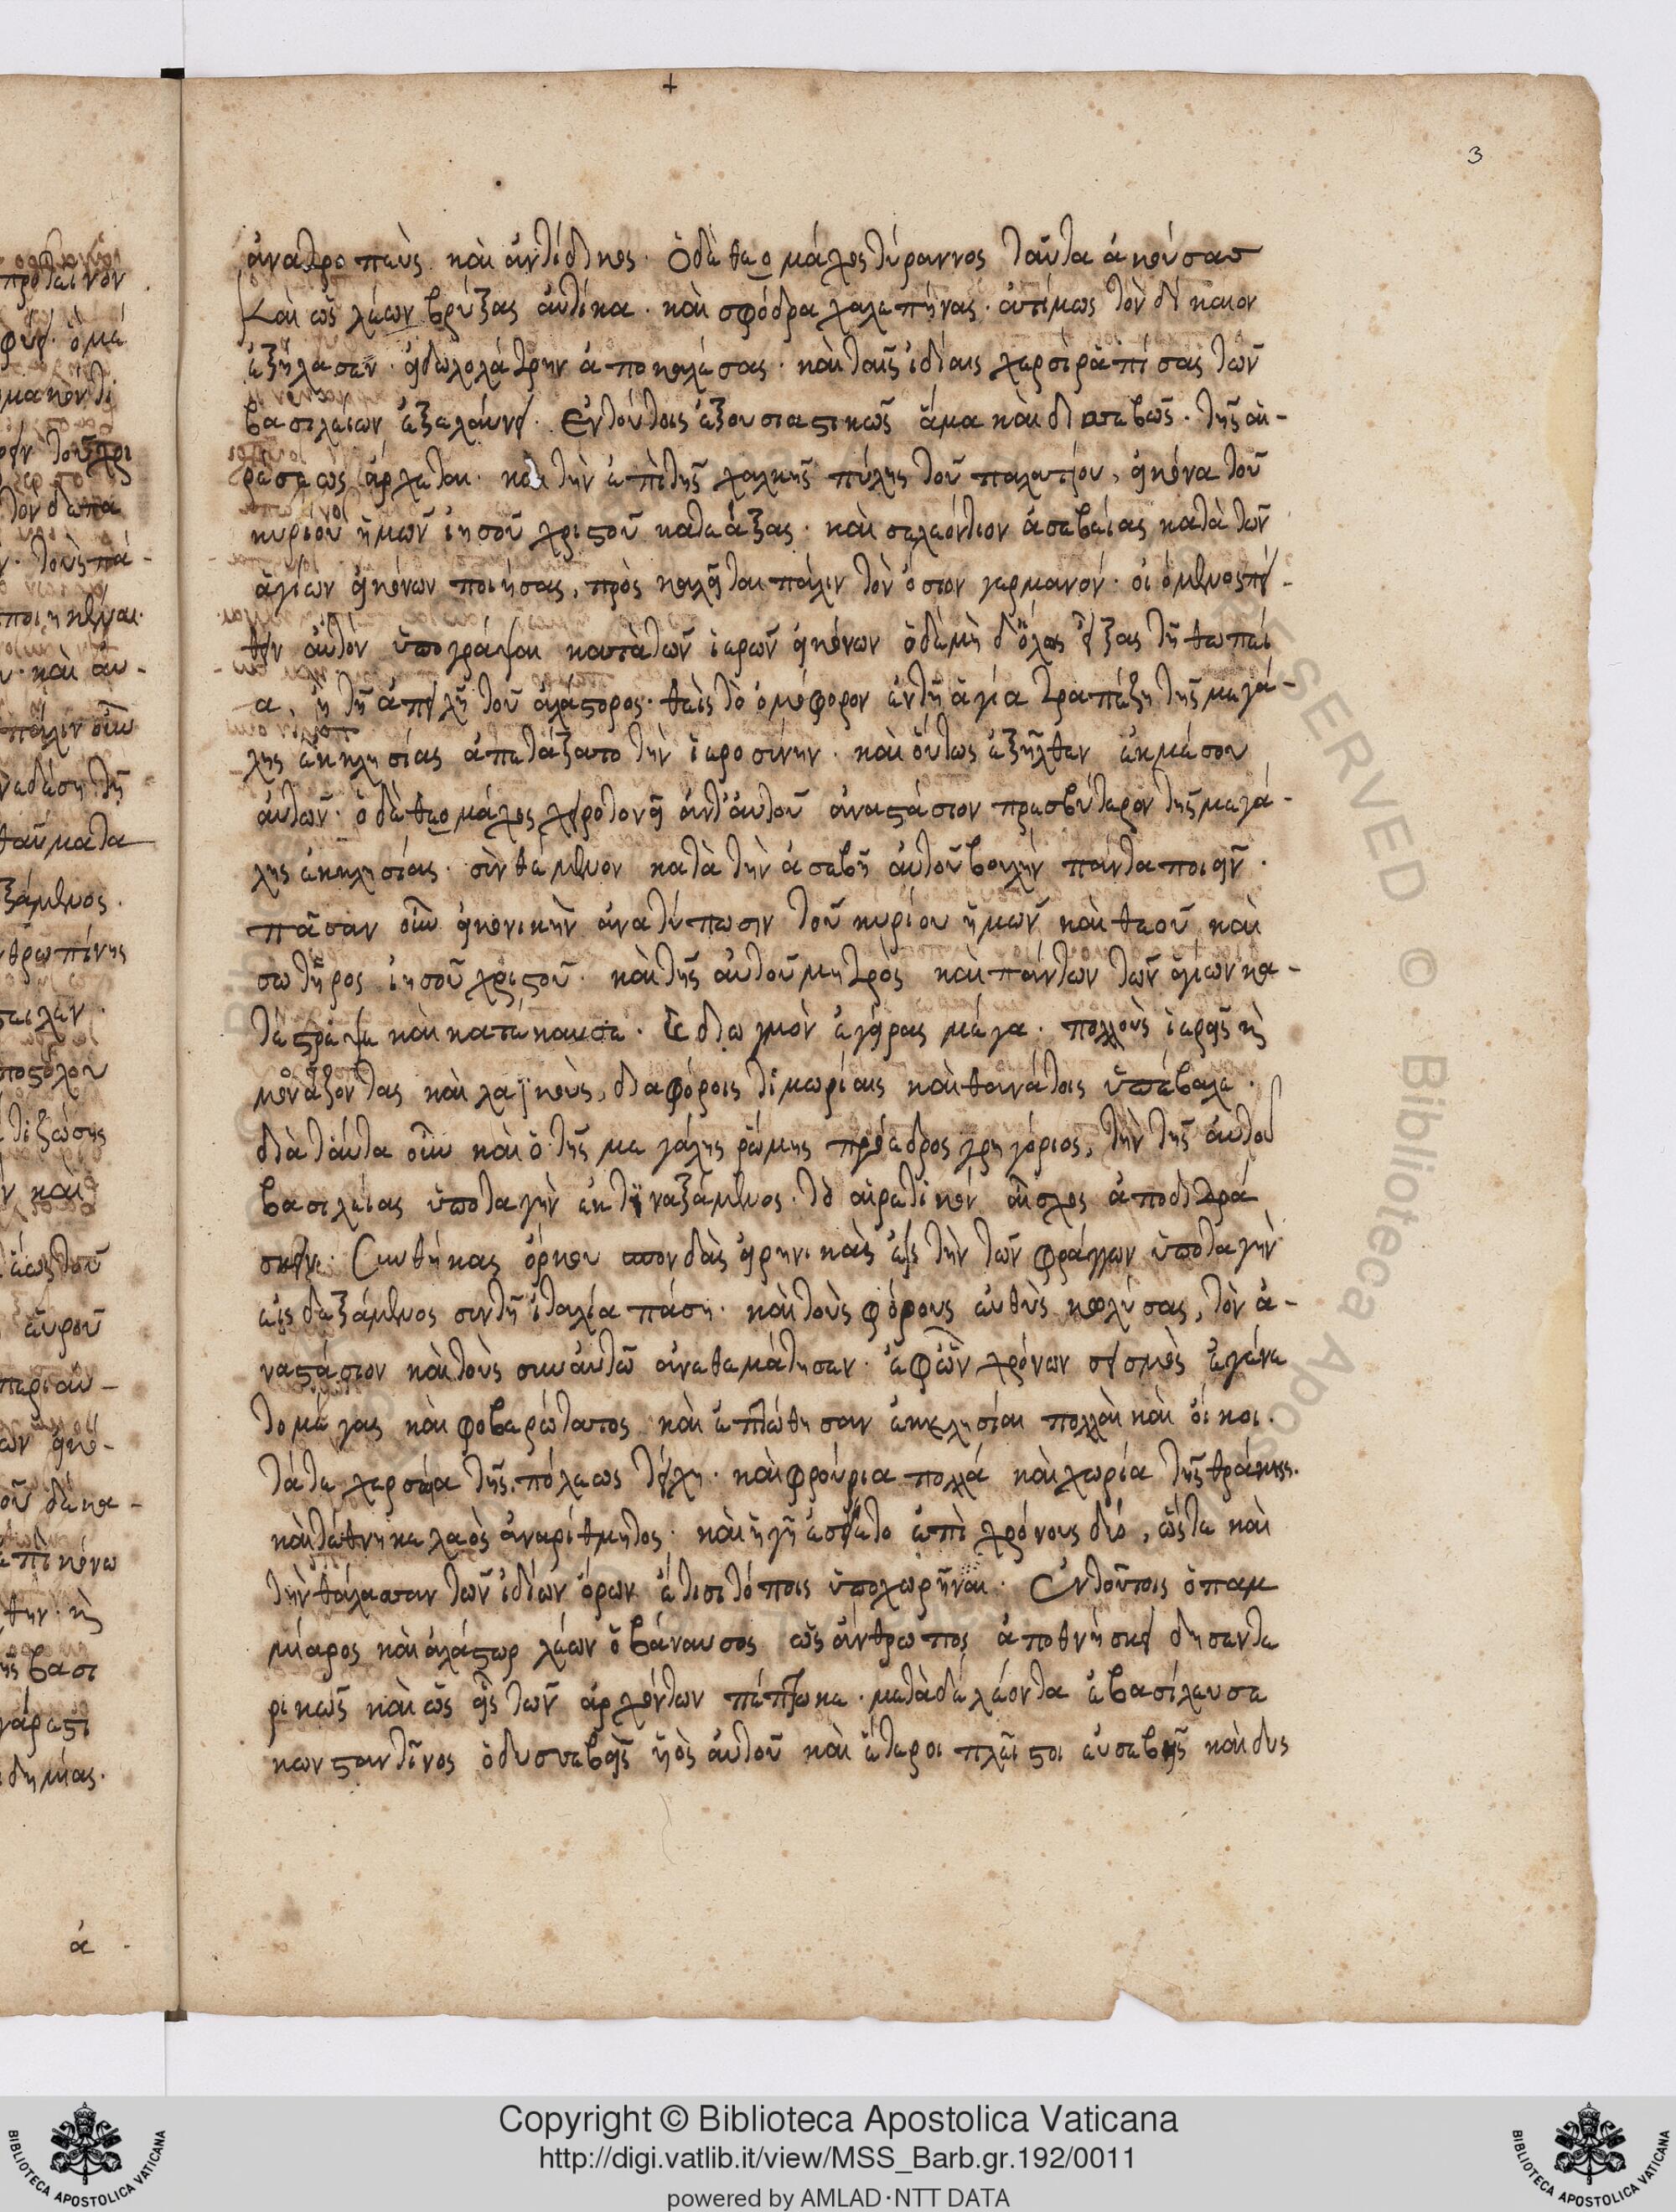 3
ἀνατροπεὺς καὶ ἀντίδικος. Ὁ δὲ θεομάχος τύραννος ταῦτα ἀκούσας
καὶ ὡς λέων βρύξας αὐτίκα. καὶ σφόδρα χαλεπήνας. ἀτίμως τὸν δίκαιον
ἐξήλασεν. εἰδωλολάτρην ἀποκαλέσας. καὶ ταῖς ἰδίαις χερσὶ ῥαπίσας τῶν
βασιλείων ἐξελαύνει. Ἐν τούτοις ἐξουσιαστικῶς ἅμα καὶ δυσσεβῶς. τῆς αἱ-
ρέσεως ἄρχεται. καὶ τὴν ἐπὶ τῆς χαλκῆς πύλης τοῦ παλατίου, εἰκόνα τοῦ
κυρίου ἡμῶν ἰησοῦ χριστοῦ κατεάξας. καὶ σελέντιον ἀσεβείας κατὰ τῶν
ἁγίων εἰκόνων ποιήσας, προσκαλεῖται πάλιν τὸν ὅσιον γερμανόν. οἰόμενος πεί-
θειν αὐτὸν ὑπογράψαι κατὰ τῶν ἱερῶν εἰκόνων ὁ δὲ μὴ δόλως εἴξας τῇ θωπεί
α, ἢ τῇ ἀπειλῇ τοῦ ἀλάστορος. θεὶς τὸ ὀμόφορον ἐν τῇ ἁγία τραπέζη τῆς μεγά-
λης ἐκκλησίας ἀπετάξατο τὴν ἱεροσίνην. καὶ οὕτως ἐξῆλθεν ἐκ μέσου
αὐτῶν. ὁ δὲ θεομάχος χειροτονεῖ ἀντ' αὐτοῦ ἀναστάσιον πρεσβύτερον τῆς μεγά-
λης ἐκκλησίας. σινθέμενον κατὰ τὴν ἀσεβῆ αὐτοῦ βουλὴν πάντα ποιεῖν.
πᾶσαν οὖν εἰκονικὴν ἀνατύπωσιν τοῦ κυρίου ἡμῶν καὶ θεοῦ καὶ
σωτῆρος ἰησοῦ χριστοῦ. καὶ τῆς αὐτοῦ μητρὸς καὶ πάντων τῶν ἁγίων κα-
τέστρεψε καὶ κατέκαυσε. διωγμὸν ἐγείρας μέγα. πολλοὺς ἱερεῖς κὶ
μονάζοντας καὶ λαϊκοὺς, διαφόροις τιμωρίαις καὶ θανάτοις ὑπέβαλε.
διὰ ταύτα οὖν καὶ ὁ τῆς μεγάλης ῥώμης πρόεδρος γρηγόριος, τὴν τῆς αὐτοῦ
βασιλείας ὑποταγὴν ἐκτιναξάμενος. τὸ αἱρετικὸν αἶσχος ἀποδιδρά
σκειν. Συνθήκας ὅρκου σπονδὰς εἰρηνικὰς εἰς τὴν τῶν φράγγων ὑποταγὴν
εἰςδεξάμενος σιν τῇ ἰταλία πάση. καὶ τοὺς φόρους εὐθὺς κολύσας, τὸν ἀ-
ναστάσιον καὶ τοὺς συν αὐτῶ ἀναθεμάτησεν. ἐφ' ὧν χρόνων σεισμὸς ἐγένε
το μέγας καὶ φοβερώτατος καὶ ἐπτώθησαν ἐκκλησίαι πολλαὶ καὶ οἶκοι.
τά τε χερσαῖα τῆς πόλεως τείχη. καὶ φρούρια πολλά καὶ χωρία τῆς θράκης.
καὶ τέθνηκε λαὸς ἀναρίθμητος. καὶ ἡ γῆ ἐσείετο ἐπὶ χρόνους δύο, ὥστε καὶ
τὴν θάλασσαν τῶν ἰδίων ὅρων ἔν τισι τόποις ὑποχωρῆναι. Ἐν τούτοις ὁ παμ
μίαρος καὶ ἀλάστωρ λέων ὁ βάναυσος ὡς ἄνθρωπος ἀποθνήσκει δησεντε
ρικῶς καὶ ὡς εἷς τῶν ἀρχόντων πέπτωκε. μετὰ δὲ λέοντα ἐβασίλευσε
κωνσταντῖνος ὁ δυσσεβὴς ὑιὸς αὐτοῦ καὶ ἕτεροι πλεῖστοι εὐσεβεῖς καὶ δυς
ἀ
Copyright © Biblioteca Apostolica Vaticana
http://digi.vatlib.it/view/MSS_Barb.gr.192/0011
powered by AMLAD·NTT DATA